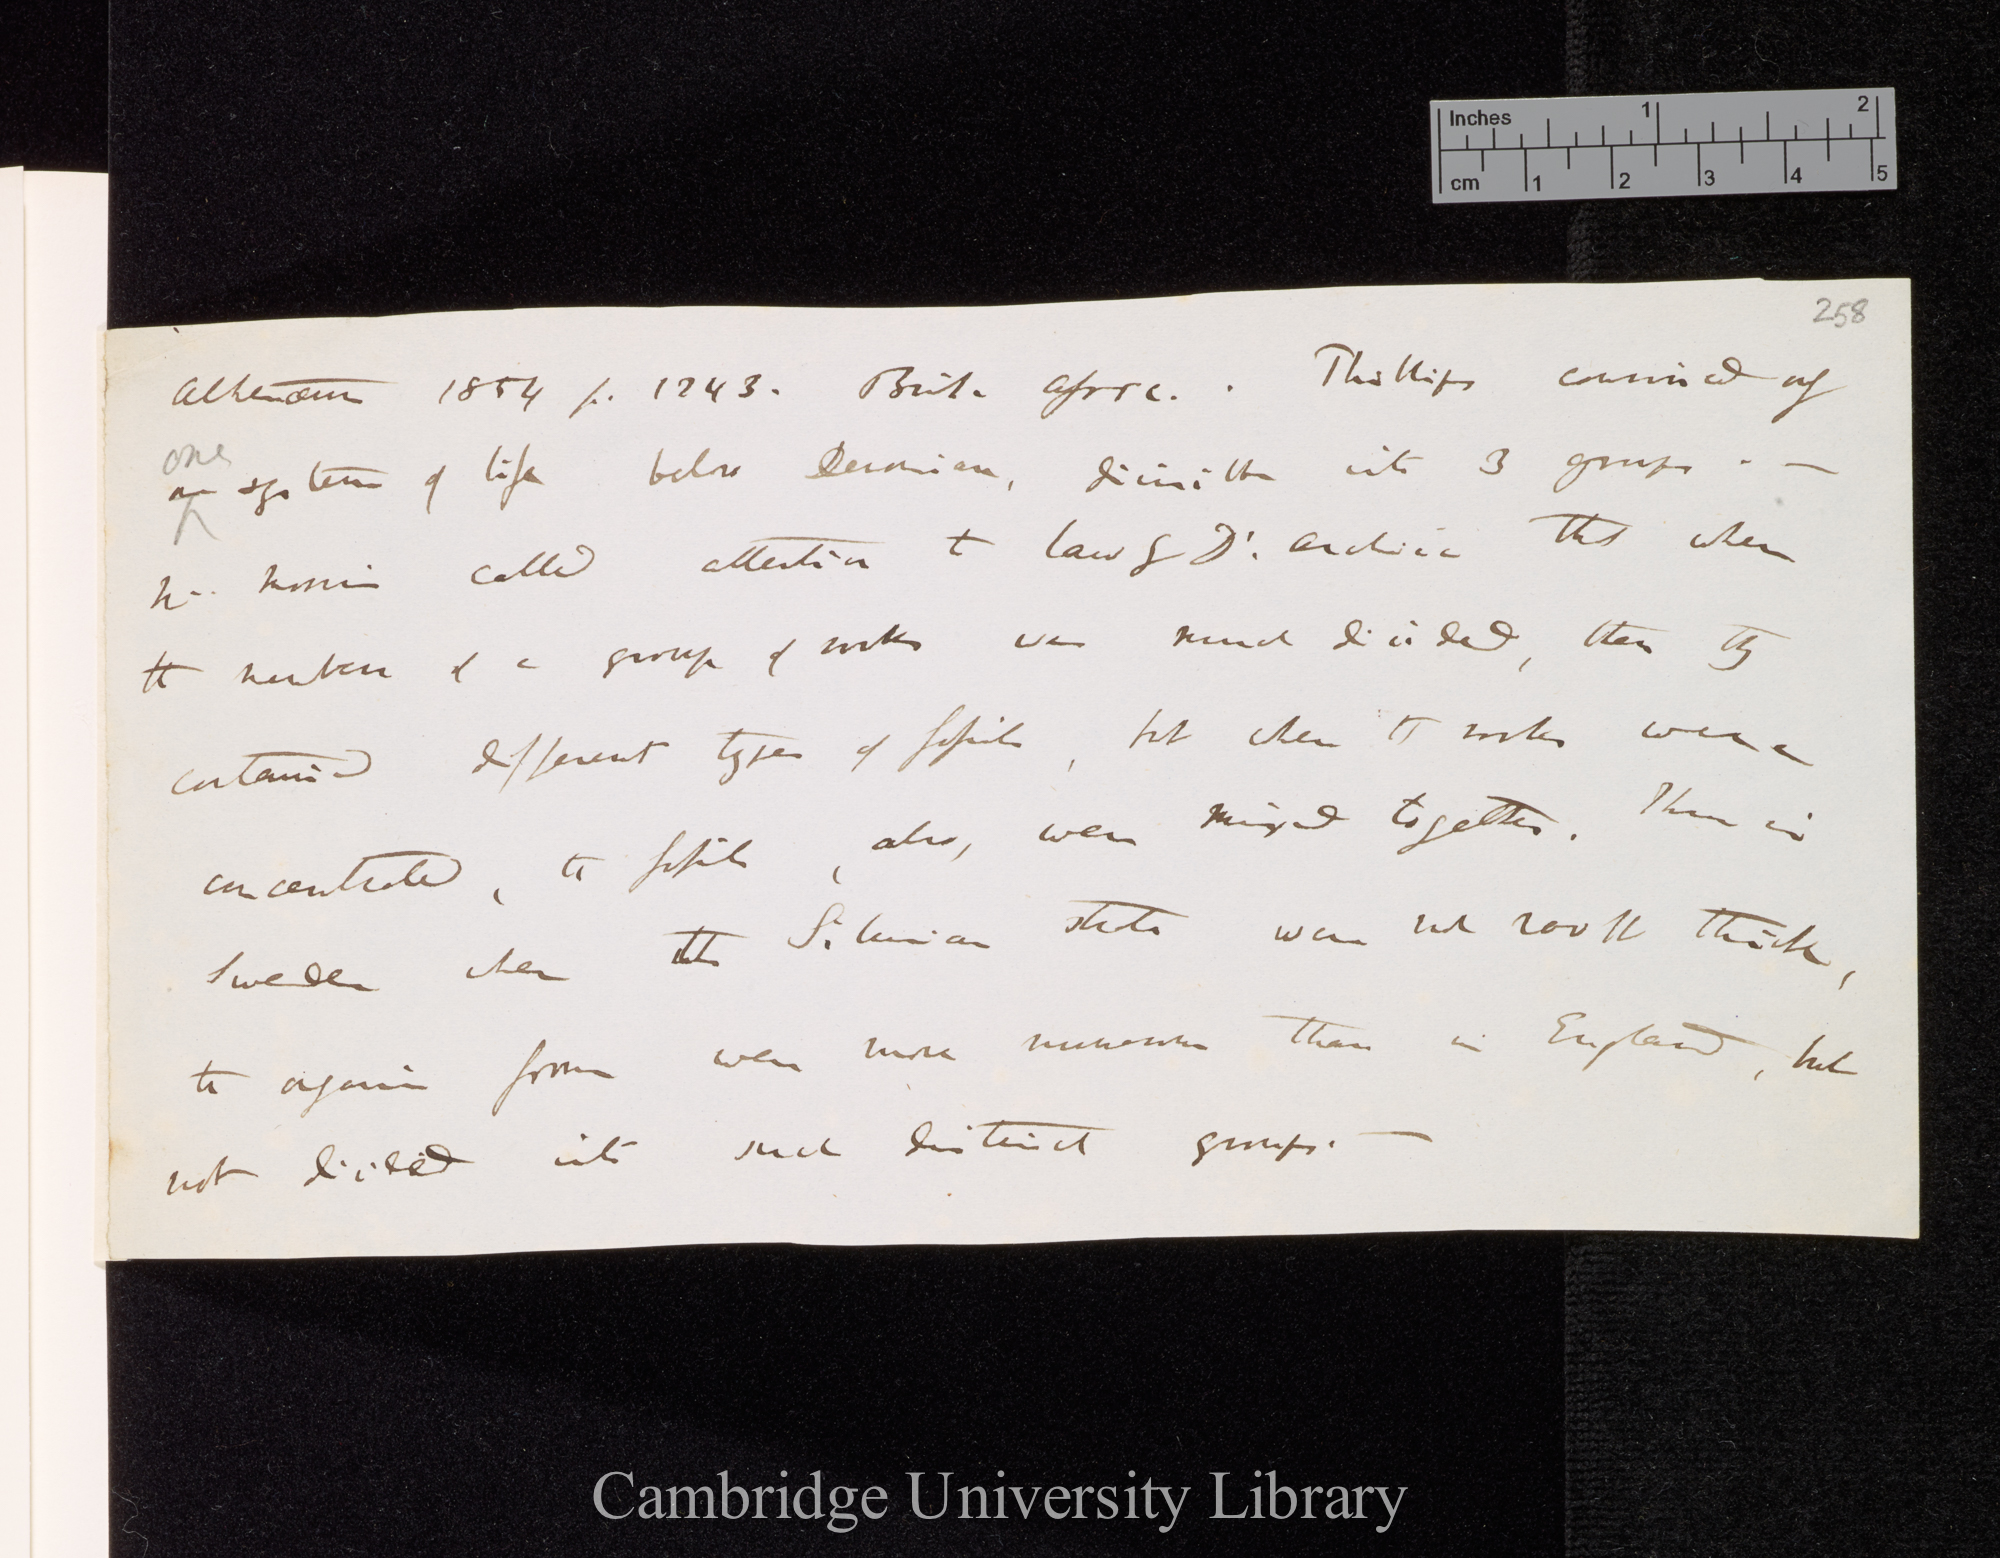 Inches 1 2
cm 1 2 3 4 5
258
Athenæum 1854 p. 1243. Brit. Assoc. . Phillips convinced of
one
one system of life below Devonian, divisible into 3 groups . —
Mr. Morris called attention to law of D'. Archiac that when
the members of a group of rocks were much divided, then they
contained different types of fossils, but when the rocks were
concentrated, the fossils, also, were mixed together. Thus in
Sweden where the Silurian strata were not 200 ft thick,
the organic forms were more numerous than in England, but
not divided into such distinct groups. —
Cambridge University Library